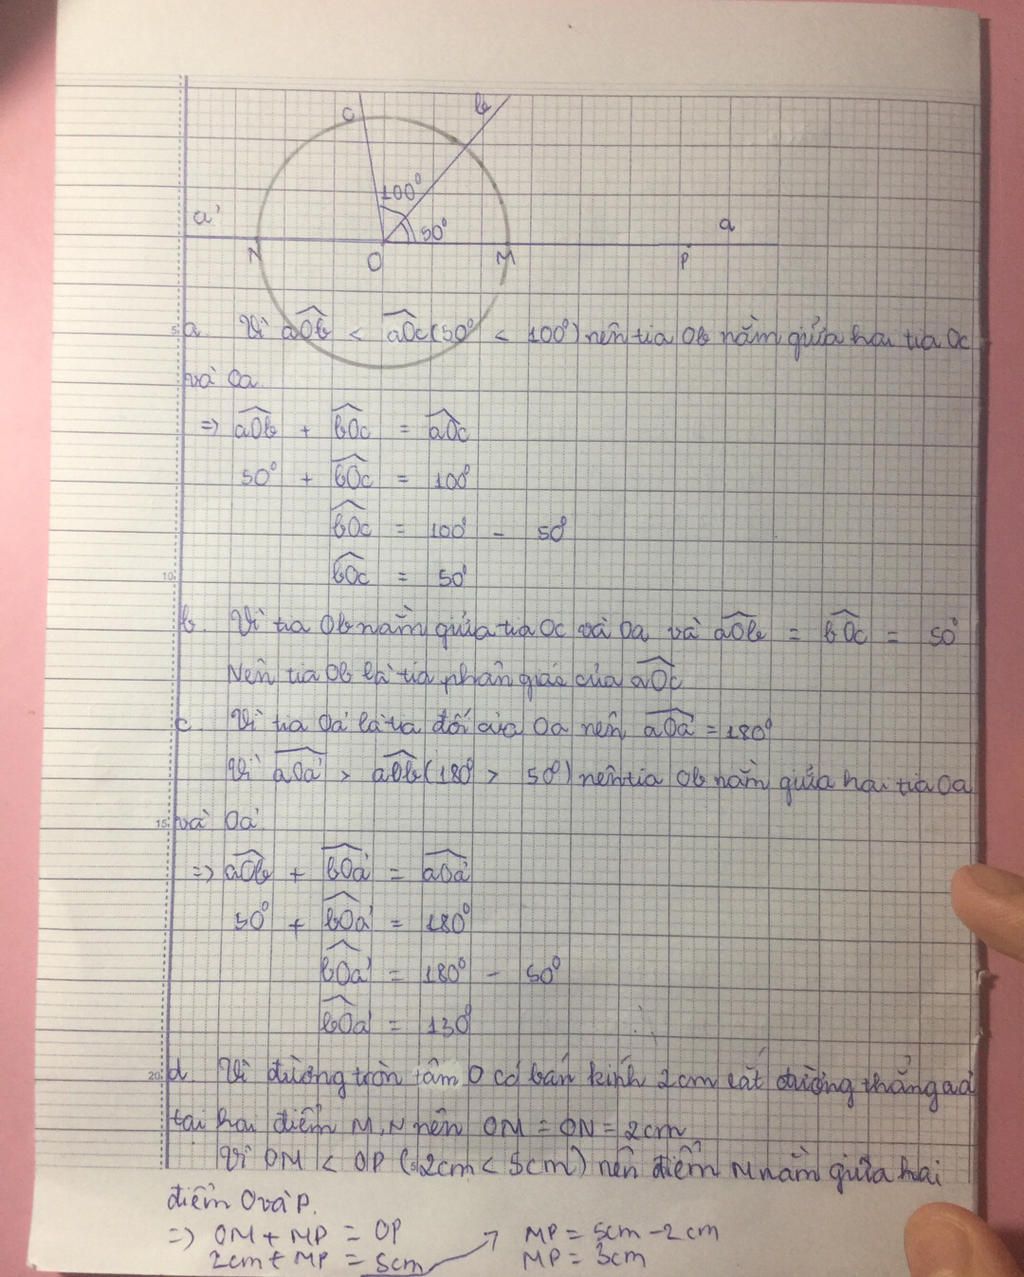 c b
100°
a' 50° a
N O M P
5 a. Vì aOb < aOc (50° < 100°) nên tia Ob nằm giữa hai tia Oc
và Oa
=> aOb + bOc = aOc
50° + bOc = 100°
bOc = 100° - 50°
10 bOc = 50°
b. Vì tia Ob nằm giữa tia Oc và Oa và aOb = bOc = 50°
Nên tia Ob là tia phân giác của aOc
c. Vì tia Oa' là tia đối của Oa nên aOa' = 180°
Vì aOa' > aOb (180° > 50°) nên tia Ob nằm giữa hai tia Oa
15 và Oa'
=> aOb + bOa' = aOa'
50° + bOa' = 180°
bOa' = 180° - 50°
bOa' = 130°
20 d. Vì đường tròn tâm O có bán kính 2cm cắt đường thẳng aa'
tại hai điểm M, N nên OM = ON = 2cm
Vì OM < OP (2cm < 5cm) nên điểm M nằm giữa hai
điểm O và P.
=> OM + MP = OP
2cm + MP = 5cm
MP = 5cm - 2cm
MP = 3cm